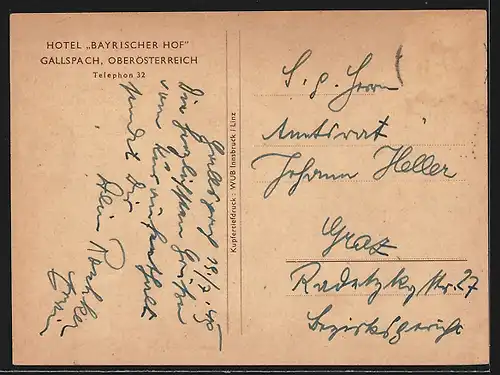 HOTEL „BAYRISCHER HOF"
GALLSPACH, OBERÖSTERREICH
Telephon 32
Gallspach
Die herzlichsten Grüße
vom Kuraufenthalt
sendet Dir
Dein
Kupfertiefdruck: WUB Innsbruck / Linz
S. g. Herrn
Amtsrat
Johann Heller
Graz
Radetzkystr. 27
Bezirksgericht